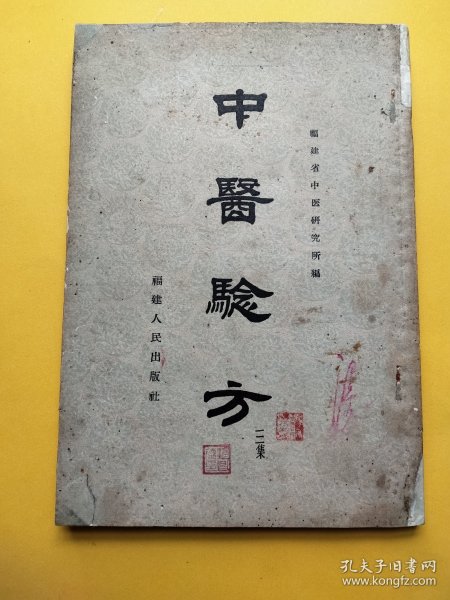 福建省中医研究所編
中醫騐方
三集
福建人民出版社
孔夫子旧书网
www.kongfz.com